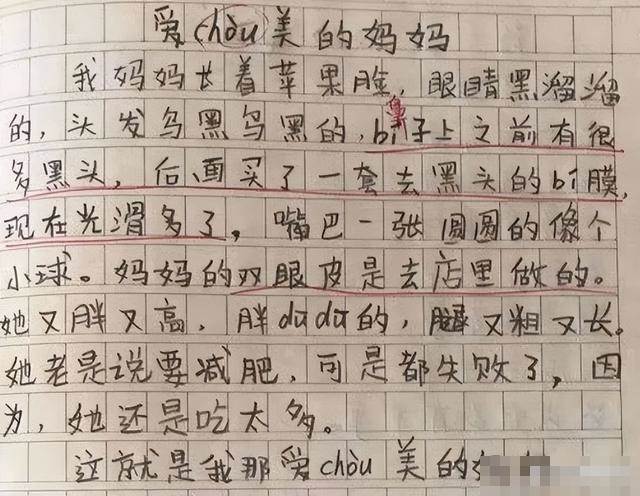 爱chòu美的妈妈
我妈妈长着苹果脸,眼睛黑溜溜
的,头发乌黑乌黑的,bí子上之前有很
鼻
多黑头,后面买了一套去黑头的bí膜,
现在光滑多了,嘴巴一张圆圆的像个
小球。妈妈的双眼皮是去店里做的。
她又胖又高,胖dūdū的,腿又粗又长。
她老是说要减肥,可是都失败了,因
为,她还是吃太多。
这就是我那爱chòu美的